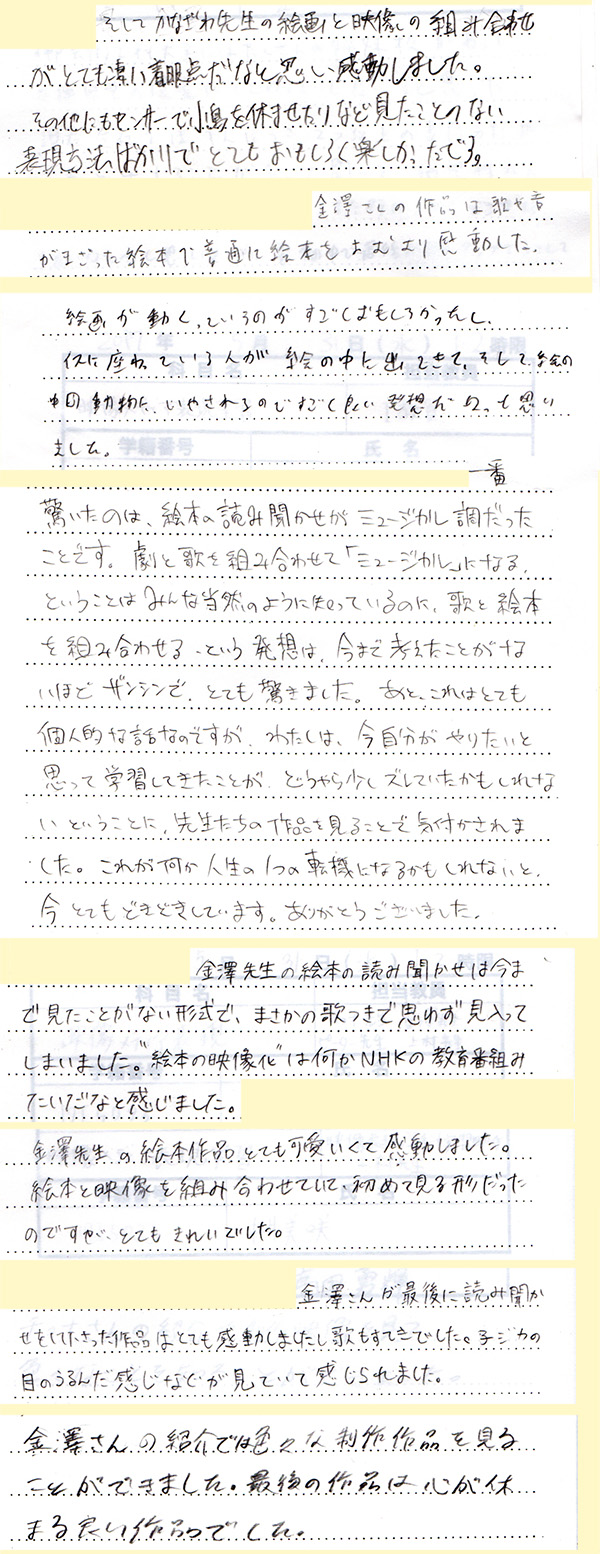 そしてかなざわ先生の絵画と映像の組み合わせ
がとても凄い着眼点だなと思い感動しました。
その他にもセンサーで小鳥を休ませたりなど見たことのない
表現方法ばかりでとてもおもしろく楽しかったです。
金澤さんの作品は歌や音
がまざった絵本で普通に絵本をよむより感動した。
絵画が動くっていうのがすごくおもしろかったし、
イスに座っている人が絵の中に出てきて、そして絵の
中の動物に、いやされるのですごく良い発想だなって思い
ました。
一番
驚いたのは、絵本の読み聞かせがミュージカル調だった
ことです。劇と歌を組み合わせて「ミュージカル」になる、
ということはみんな当然のように知っているのに、歌と絵本
を組み合わせる、という発想は、今まで考えたことがな
いほどザンシンで、とても驚きました。あと、これはとても
個人的な話なのですが、わたしは、今自分がやりたいと
思って学習してきたことが、どうやら少しズレていたかもしれな
いということに、先生たちの作品を見ることで気付かされま
した。これが何か人生の1つの転機になるかもしれないと、
今とてもどきどきしています。ありがとうございました。
金澤先生の絵本の読み聞かせは今ま
で見たことがない形式で、まさかの歌つきで思わず見入って
しまいました。"絵本の映像化"は何かNHKの教育番組み
たいだなと感じました。
金澤先生の絵本作品とても可愛いくて感動しました。
絵本と映像を組み合わせていて、初めて見る形だった
のですが、とてもきれいでした。
金澤さんが最後に読み聞か
せをして下さった作品はとても感動しましたし歌もすてきでした。子ジカの
目のうるんだ感じなどが見ていて感じられました。
金澤さんの紹介では色々な制作作品を見る
ことができました。最後の作品は心が休
まる良い作品でした。